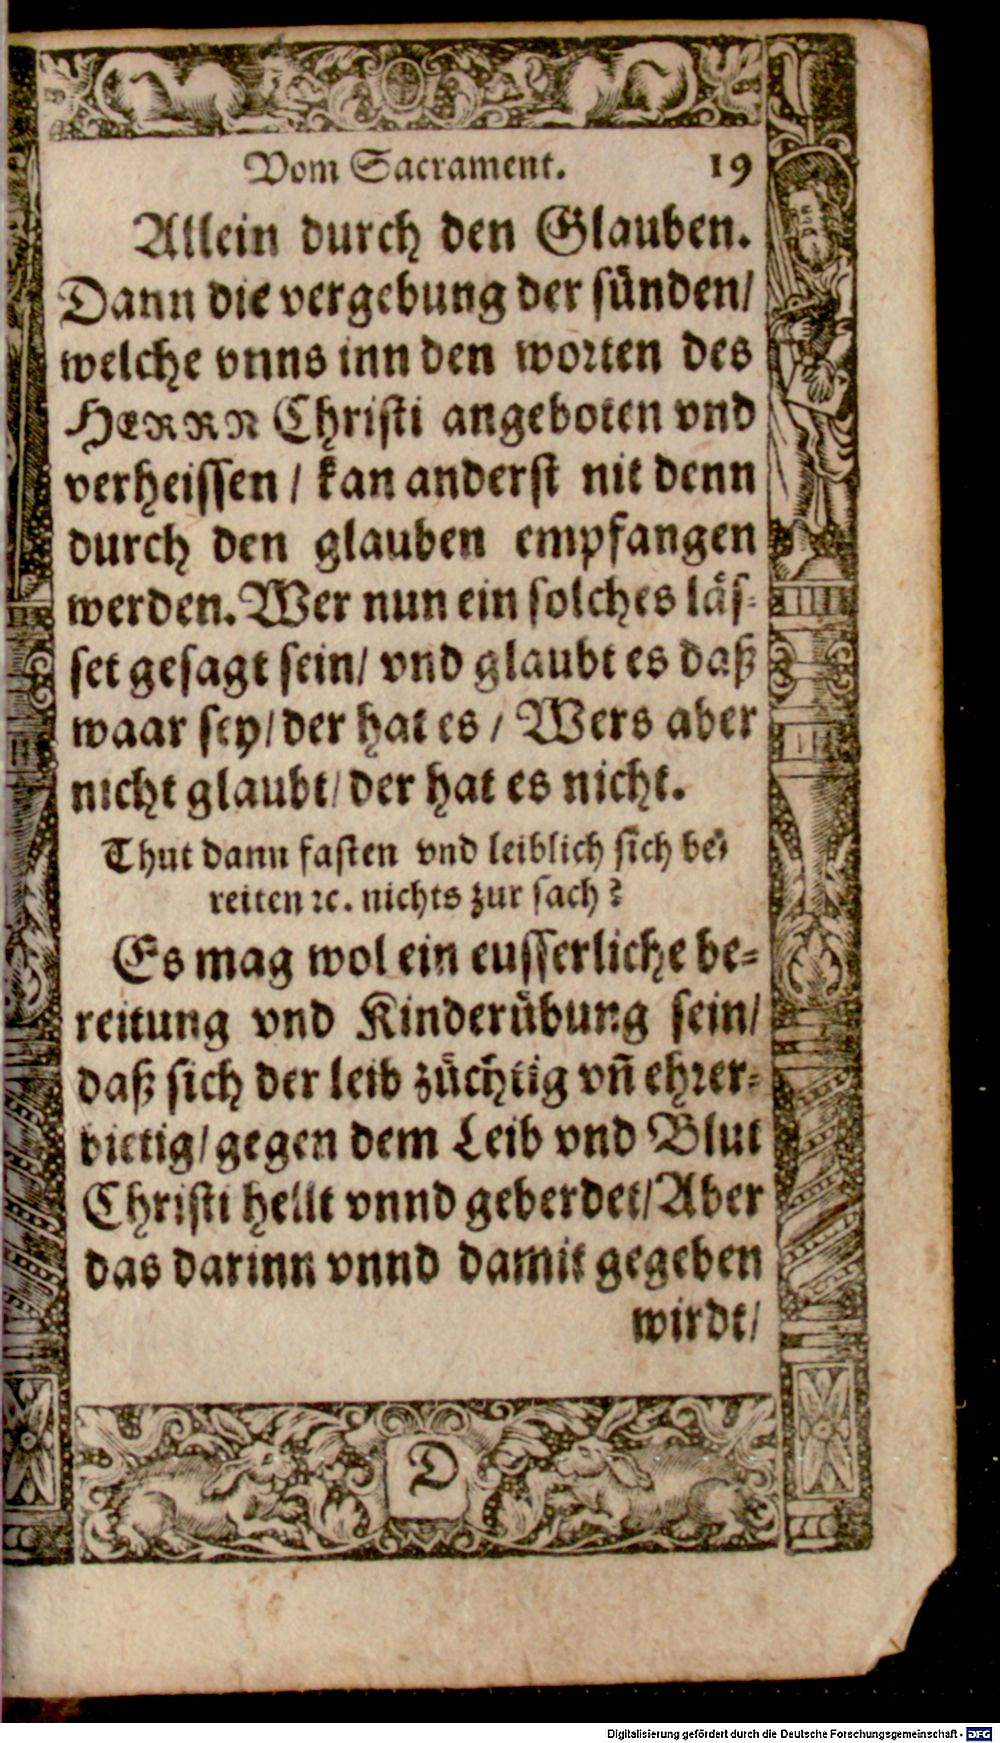 Vom Sacrament. 19
Allein durch den Glauben.
Dann die vergebung der sünden/
welche vnns inn den worten des
HERRN Christi angeboten vnd
verheissen / kan anderst nit denn
durch den glauben empfangen
werden. Wer nun ein solches läs-
set gesagt sein/ vnd glaubt es daß
waar sey/ der hat es / Wers aber
nicht glaubt/ der hat es nicht.
Thut dann fasten vnd leiblich sich be-
reiten ꝛc. nichts zur sach?
Es mag wol ein eusserliche be-
reitung vnd Kinderübung sein/
daß sich der leib züchtig vñ ehrer-
bietig/ gegen dem Leib vnd Blut
Christi hellt vnnd geberdet/ Aber
das darinn vnnd damit gegeben
wirdt/
D
Digitalisierung gefördert durch die Deutsche Forschungsgemeinschaft - DFG